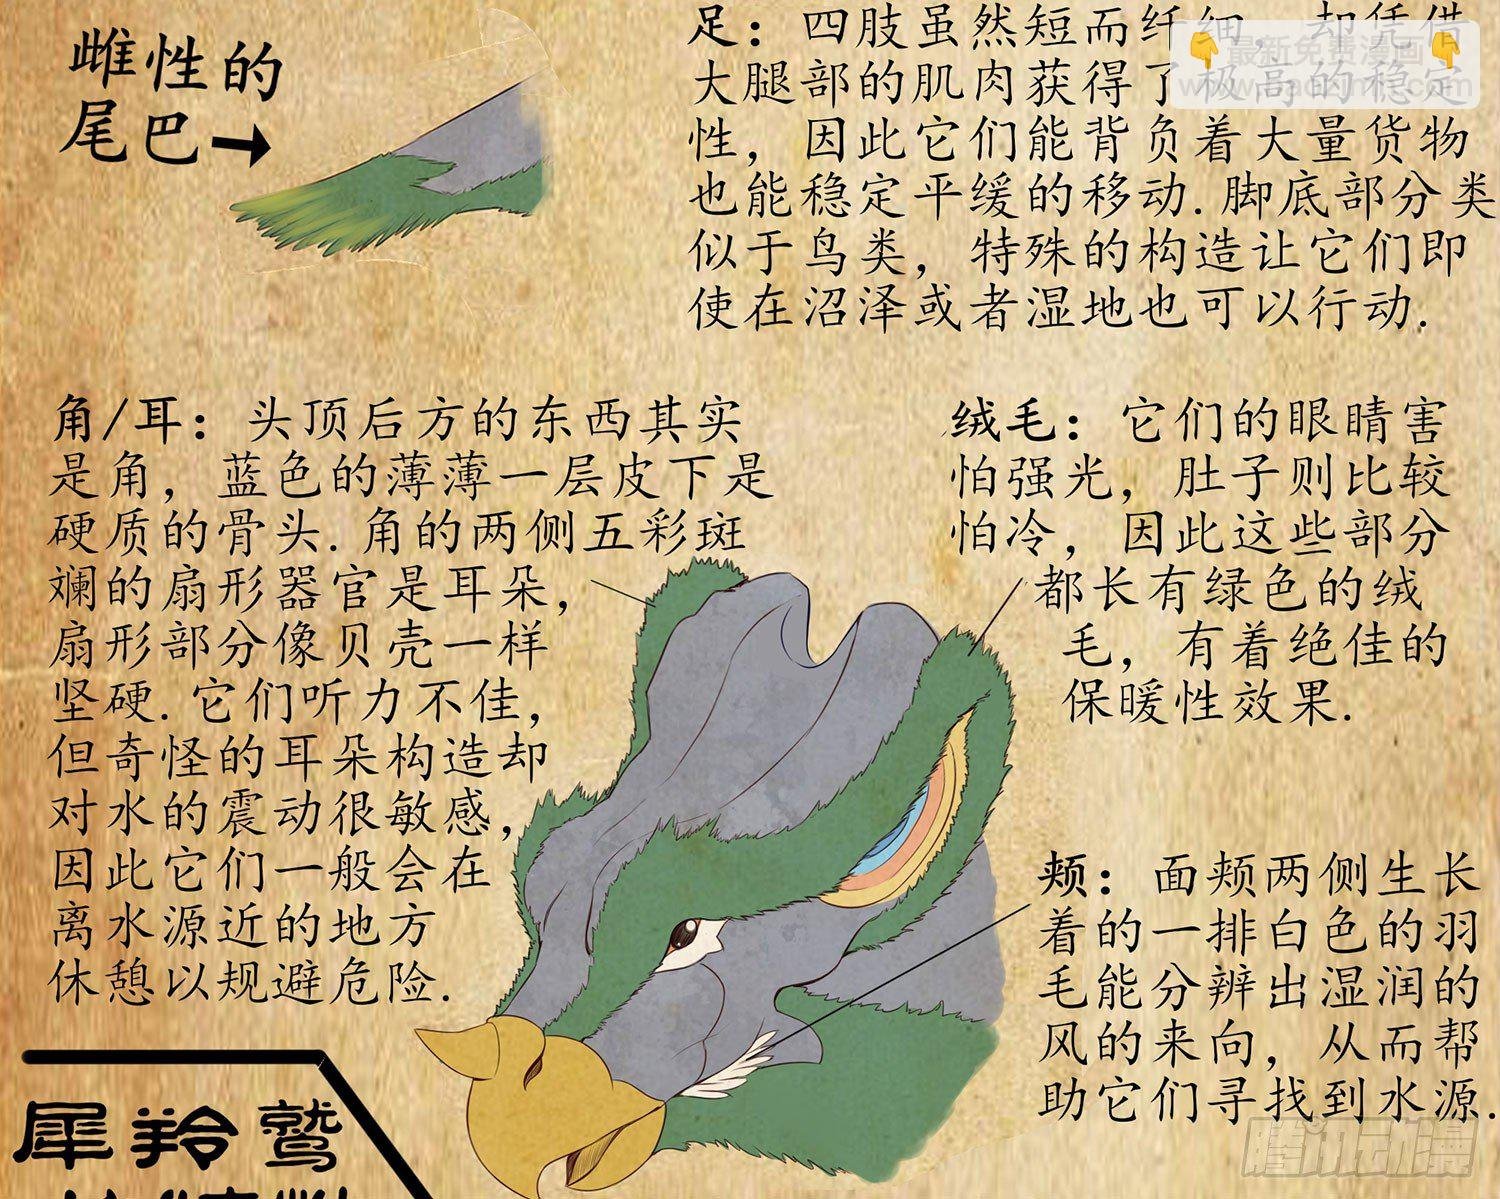 雌性的
尾巴→
足：四肢虽然短而纤细，却凭借
大腿部的肌肉获得了极高的稳定
性，因此它们能背负着大量货物
也能稳定平缓的移动.脚底部分类
似于鸟类，特殊的构造让它们即
使在沼泽或者湿地也可以行动.
最新免费漫画
角/耳：头顶后方的东西其实
是角，蓝色的薄薄一层皮下是
硬质的骨头.角的两侧五彩斑
斓的扇形器官是耳朵，
扇形部分像贝壳一样
坚硬.它们听力不佳，
但奇怪的耳朵构造却
对水的震动很敏感，
因此它们一般会在
离水源近的地方
休憩以规避危险.
绒毛：它们的眼睛害
怕强光，肚子则比较
怕冷，因此这些部分
都长有绿色的绒
毛，有着绝佳的
保暖性效果.
颊：面颊两侧生长
着的一排白色的羽
毛能分辨出湿润的
风的来向，从而帮
助它们寻找到水源.
犀羚鹫
腾讯动漫